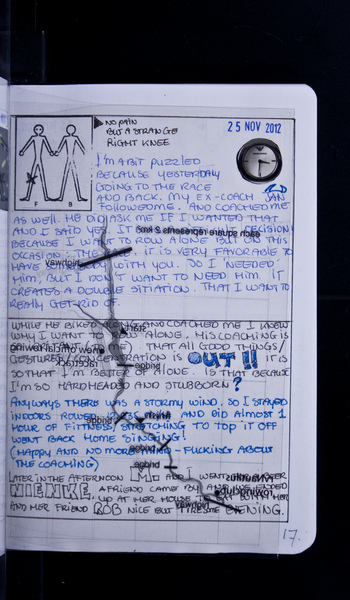 NO PAIN
BUT A STRANGE
RIGHT KNEE
25 NOV 2012
F B
I'M A BIT PUZZLED
BECAUSE YESTERDAY
GOING TO THE RACE
AND BACK. MY EX-COACH JAN
FOLLOWS ME. AND COACHED ME
AS WELL. HE DID ASK ME IF I WANTED THAT
AND I SAID YES. IT DECISION
each square represents 2 km
BECAUSE I WANT TO ROW ALONE BUT ON THIS
OCCASION: THE IT IS VERY FAVORABLE TO
viewdam
HAVE WITH YOU. SO I 'NEEDED'
HIM, BUT I DON'T WANT TO NEED HIM. IT
CREATES A DOUBLE SITATION. THAT I WANT TO
REALLY GET RID OF.
WHILE HE BIKED AND COACHED ME I KNEW
WHY I WANT TO ROW ALONE. HIS COACHING IS
THAT ALL GOOD THINGS/
GESTURES/CONCENTRATION IS OUT!! IT IS
SO THAT I'M BETTER OF ALONE. IS THAT BECAUSE
bridge
I'M SO HARDHEADED AND STUBBORN?
ANYWAYS THERE WAS A STORMY WIND. SO I STAYED
INDOORS ROWED AND DID ALMOST 1
HOUR OF FITTNESS/STRETCHING TO TOP IT OFF
bridge
WENT BACK HOME SINGING!
(HAPPY AND NO MORE MIND-FUCKING ABOUT
bridge
THE COACHING)
bridge
LATER IN THE AFTERNOON M AND I WENT
NIENKE, A FRIEND CAME BY AND WE ENDED
rowingclub
UP AT HER HOUSE WITH HER
viewdam
AND HER FRIEND ROB NICE BUT TIRESOME EVENING.
17.